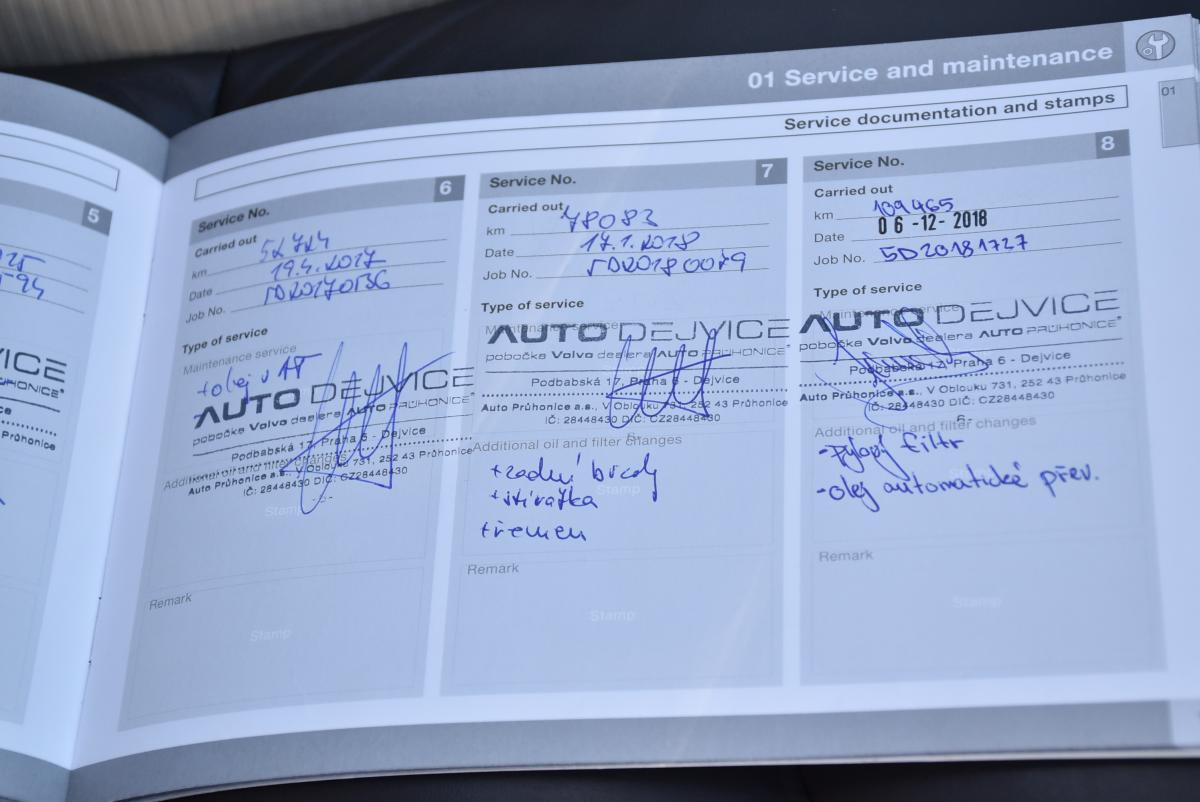 01 Service and maintenance
01
Service documentation and stamps
5
VICE
PRŮHONICE®
Průhonice
Service No. 6
Carried out
km 52724
Date 19.4.2017
Job No.
Type of service
Maintenance service
+olej v AT
AUTO DEJVICE
pobočka Volvo dealera AUTO PRŮHONICE®
Podbabská 17, Praha 6 - Dejvice
Auto Průhonice a.s., V Oblouku 731, 252 43 Průhonice
IČ: 28448430 DIČ: CZ28448430
-6-
Additional oil and filter changes
Stamp
Remark
Stamp
Service No. 7
Carried out
km 78083
Date 17.1.2018
Job No.
Type of service
Maintenance service
AUTO DEJVICE
pobočka Volvo dealera AUTO PRŮHONICE®
Podbabská 17, Praha 6 - Dejvice
Auto Průhonice a.s., V Oblouku 731, 252 43 Průhonice
IČ: 28448430 DIČ: CZ28448430
-6-
Additional oil and filter changes
+zadní brzdy
+stíratka
Stamp
+řemen
Remark
Stamp
Service No. 8
Carried out
km 109465
Date 06-12-2018
Job No. 5D20181727
Type of service
Maintenance service
AUTO DEJVICE
pobočka Volvo dealera AUTO PRŮHONICE®
Podbabská 17, Praha 6 - Dejvice
Auto Průhonice a.s., V Oblouku 731, 252 43 Průhonice
IČ: 28448430 DIČ: CZ28448430
-6-
Additional oil and filter changes
-pylový filtr
Stamp
-olej automatické přev.
Remark
Stamp